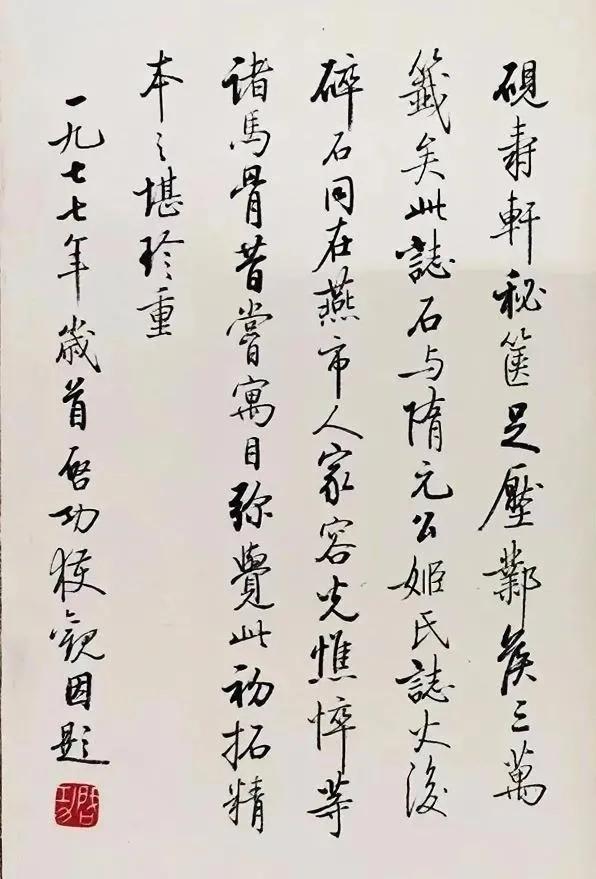 硯壽軒秘篋足壓鄴矦三萬
籤矣此誌石与隋元公姬氏誌火後
碎石同在燕市人家容光憔悴等
諸馬骨昔嘗寓目弥覺此初拓精
本之堪珍重
一九七七年歲首啓功獲觀因題
啓功